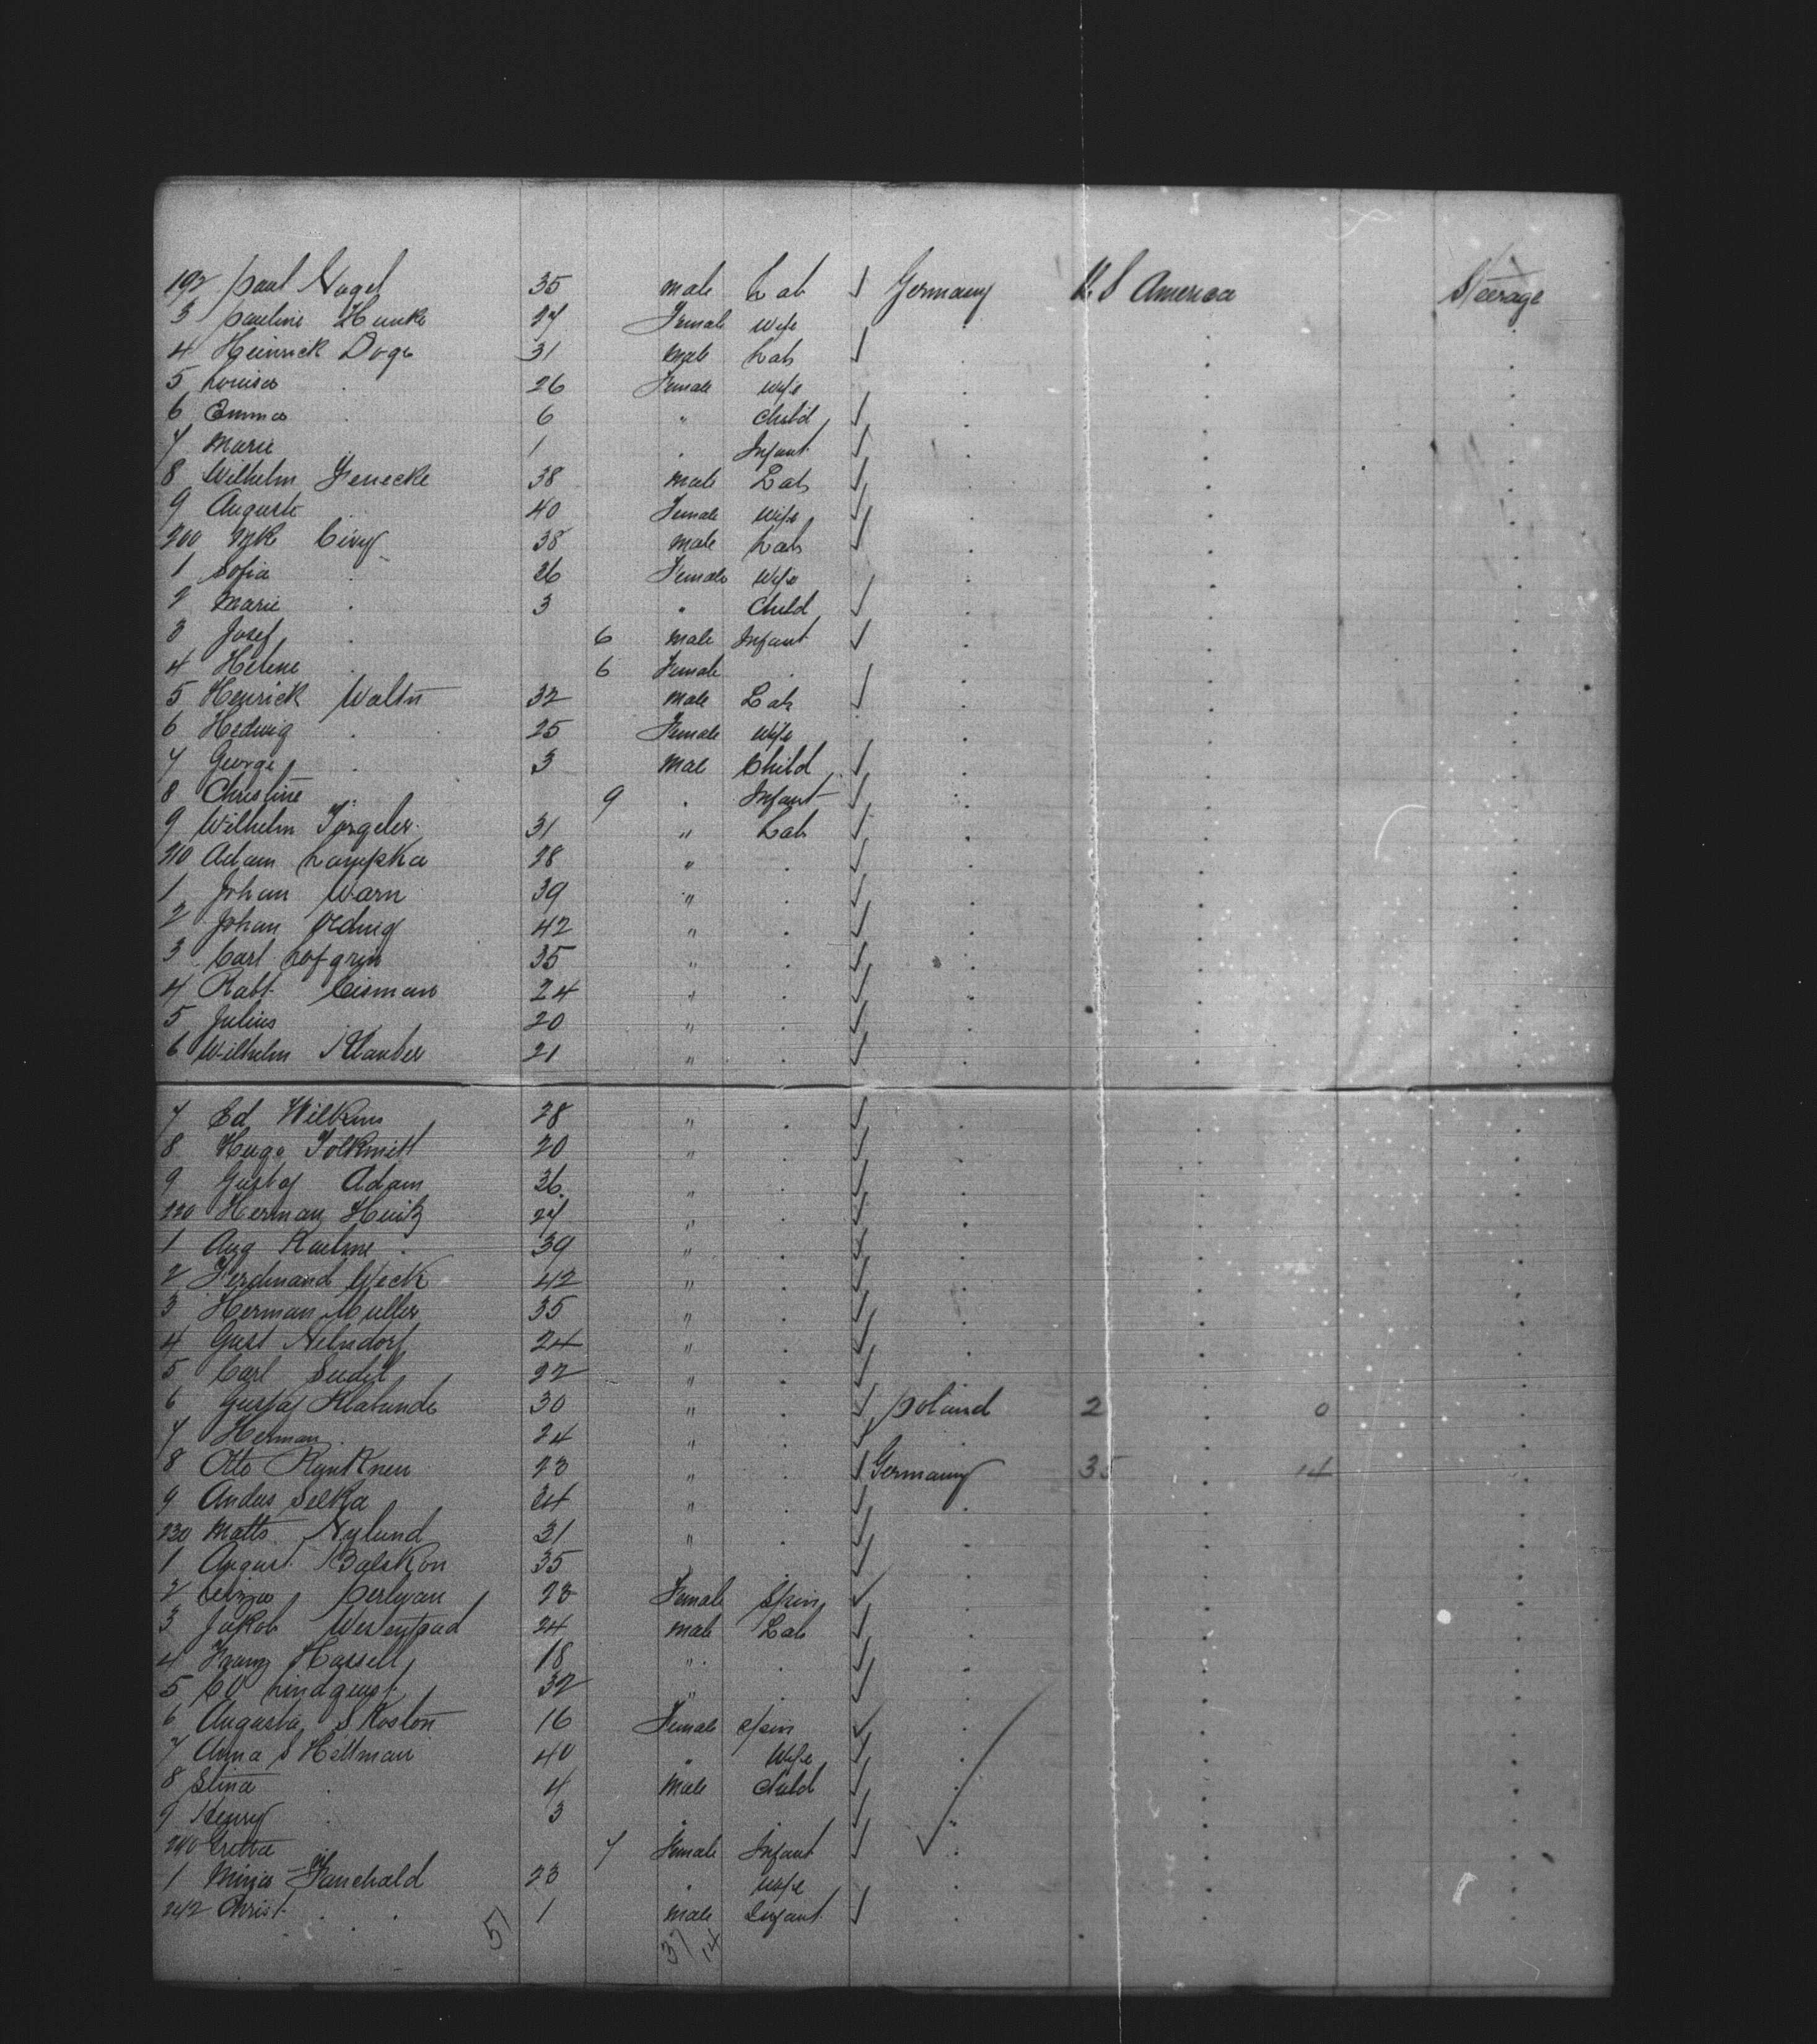 192 Paul Nagel 35 male Lab ✓ Germany U.S America Steerage
3 Pauline Hunke 27 Female wife
4 Heinrick Doge 31 male Lab ✓
5 Louisa 26 Female wife
6 Emma 6 " Child ✓
7 Marie 1 . Infant ✓
8 Wilhelm Jenecke 38 male Lab ✓
9 Auguste 40 Female wife ✓
200 38 male Lab ✓
1 Sofia 26 Female wife
2 Marie . 3 " Child ✓
3 Josef . 6 male Infant ✓
4 Helene . 6 Female .
5 Henrick Walter 32 male Lab ✓
6 Hedwig . 25 Female wife
7 George . 3 Male Child ✓
8 Christine .. 9 . Infant ✓
9 Wilhelm Torgeler 31 " Lab ✓
210 Adam 28 " . ✓
1 Johan Warn 39 " . ✓
2 Johan 42 " . ✓
3 Carl Lofgrin 35 " . ✓
4 Robt Eisman 24 " . ✓
5 Julius . 20 " . ✓
6 Wilhelm Klauber 21 " . ✓
7 Ed Wilkins 28 " . ✓
8 Hugo Tolkmitt 20 " . ✓
9 Gustaf Adam 36 " . ✓
220 Herman 27 " . ✓
1 Aug Kuehne 39 " . ✓
2 Ferdinand Weck 42 " . ✓
3 Herman Muller 35 " . ✓
4 Gust Nelndorf 24 " . ✓
5 Carl Seidel 22 " . ✓
6 Gustaf Klabunde 30 " . ✓ Poland 2 0
7 Herman . 24 " . ✓
8 Otto 23 " . ✓ Germany 35 14
9 Andus Selka 24 " . ✓
230 Matts Nylund 31 " . ✓
1 August 35 " ✓
2 23 Female Spin ✓
3 Jakob 24 male Lab ✓
4 Franz Hassell 18 " . ✓
5 Lindquist 32 " . ✓
6 Augusta S Koston 16 Female Spin ✓
7 Anna S Hellman 40 " Wife ✓
8 Stina . 4 Male Child ✓
9 Henry . 3 " . ✓
240 Gretta . 7 Female Infant ✓
1 Minja 23 . wife
242 Christ . . 1 male Infant ✓
51 37 14